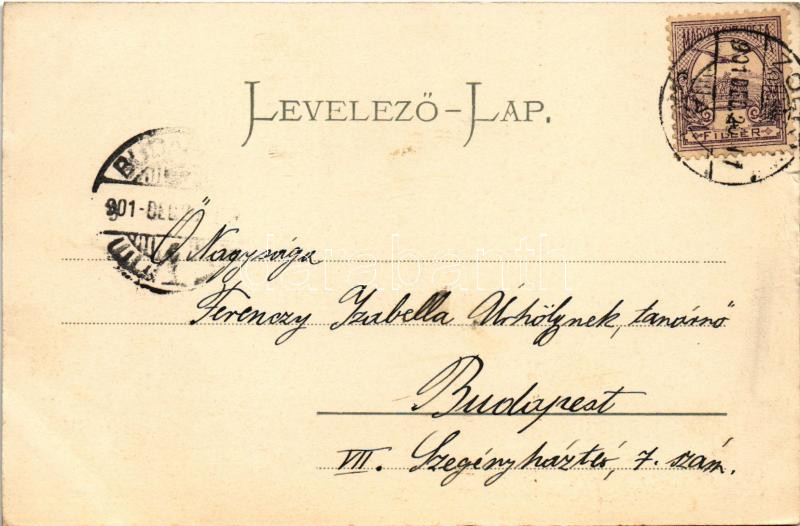 LEVELEZŐ-LAP.
MAGYAR KIR. POSTA
FILLÉR
901 DEC.
901 - DEC.
Ő Nagysága
Ferenczy Izabella Úrhölgynek, tanárnő
Budapest
VII. Szegényháztér, 7. szám.
darabanth